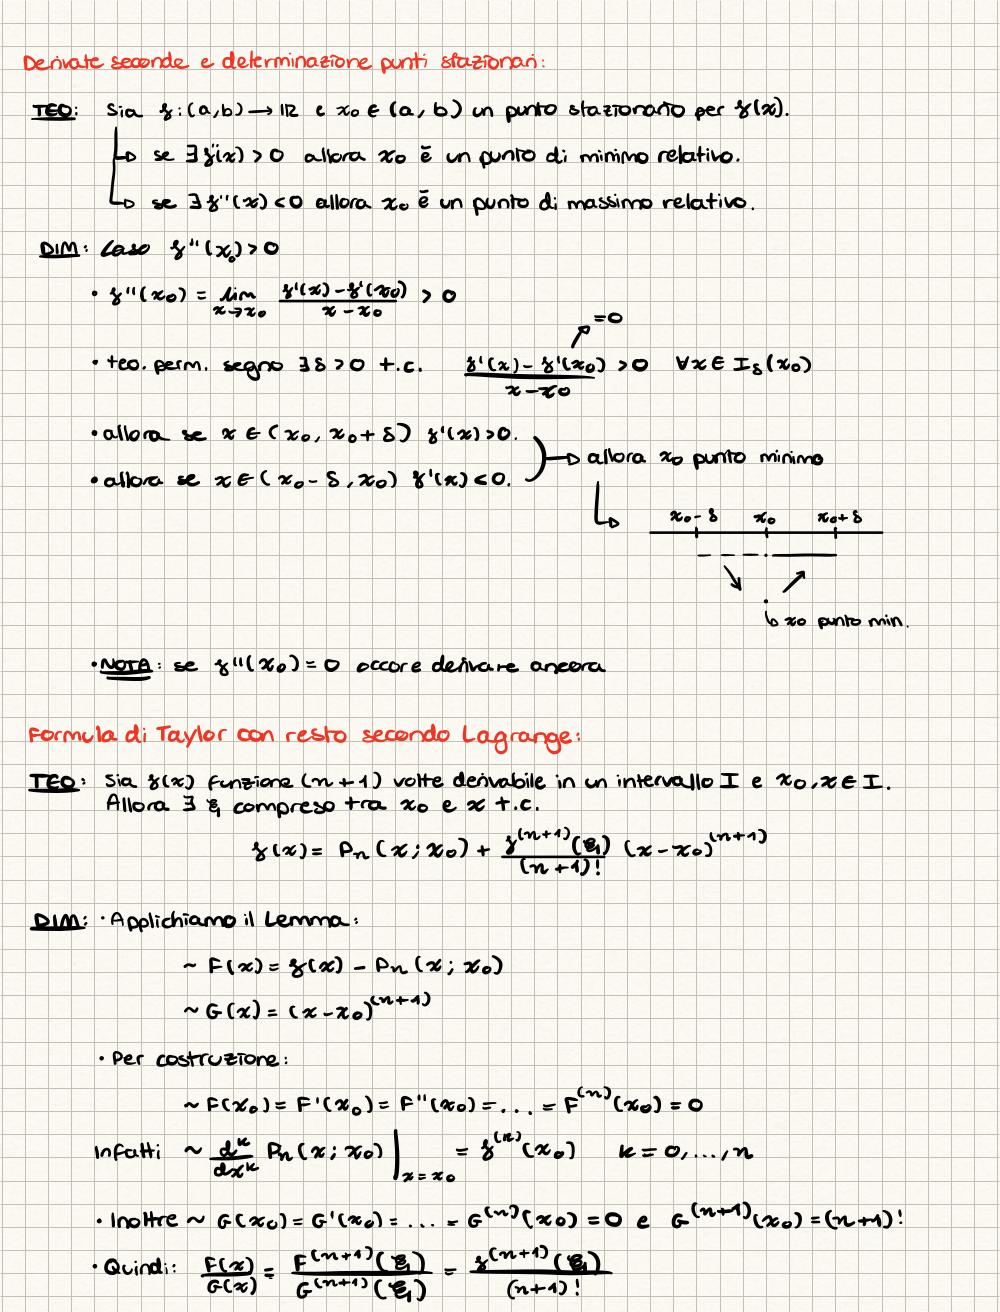 Derivate seconde e determinazione punti stazionari:
TEO: Sia f:(a,b) → ℝ e x₀ ∈ (a,b) un punto stazionario per f(x).
↳ se ∃ f''(x) > 0 allora x₀ è un punto di minimo relativo.
↳ se ∃ f''(x) < 0 allora x₀ è un punto di massimo relativo.
DIM: Caso f''(x₀) > 0
• f''(x₀) = lim_{x→x₀} (f'(x) - f'(x₀))/(x - x₀) > 0
= 0
• teo. perm. segno ∃ δ > 0 t.c. (f'(x) - f'(x₀))/(x - x₀) > 0 ∀x ∈ I_δ(x₀)
• allora se x ∈ (x₀, x₀+δ) f'(x) > 0.
→ allora x₀ punto minimo
• allora se x ∈ (x₀-δ, x₀) f'(x) < 0.
x₀-δ x₀ x₀+δ
↳ x₀ punto min.
• NOTA: se f''(x₀) = 0 occore derivare ancora
Formula di Taylor con resto secondo Lagrange:
TEO: Sia f(x) funzione (n+1) volte derivabile in un intervallo I e x₀, x ∈ I.
Allora ∃ ξ compreso tra x₀ e x t.c.
f(x) = Pₙ(x; x₀) + f^(n+1)(ξ)/(n+1)! (x-x₀)^(n+1)
DIM: • Applichiamo il Lemma:
~ F(x) = f(x) - Pₙ(x; x₀)
~ G(x) = (x-x₀)^(n+1)
• Per costruzione:
~ F(x₀) = F'(x₀) = F''(x₀) = ... = F^(n)(x₀) = 0
Infatti ~ d^k/dx^k Pₙ(x; x₀) |_{x=x₀} = f^(k)(x₀) k = 0,...,n
• Inoltre ~ G(x₀) = G'(x₀) = ... = G^(n)(x₀) = 0 e G^(n+1)(x₀) = (n+1)!
• Quindi: F(x)/G(x) = F^(n+1)(ξ)/G^(n+1)(ξ) = f^(n+1)(ξ)/(n+1)!